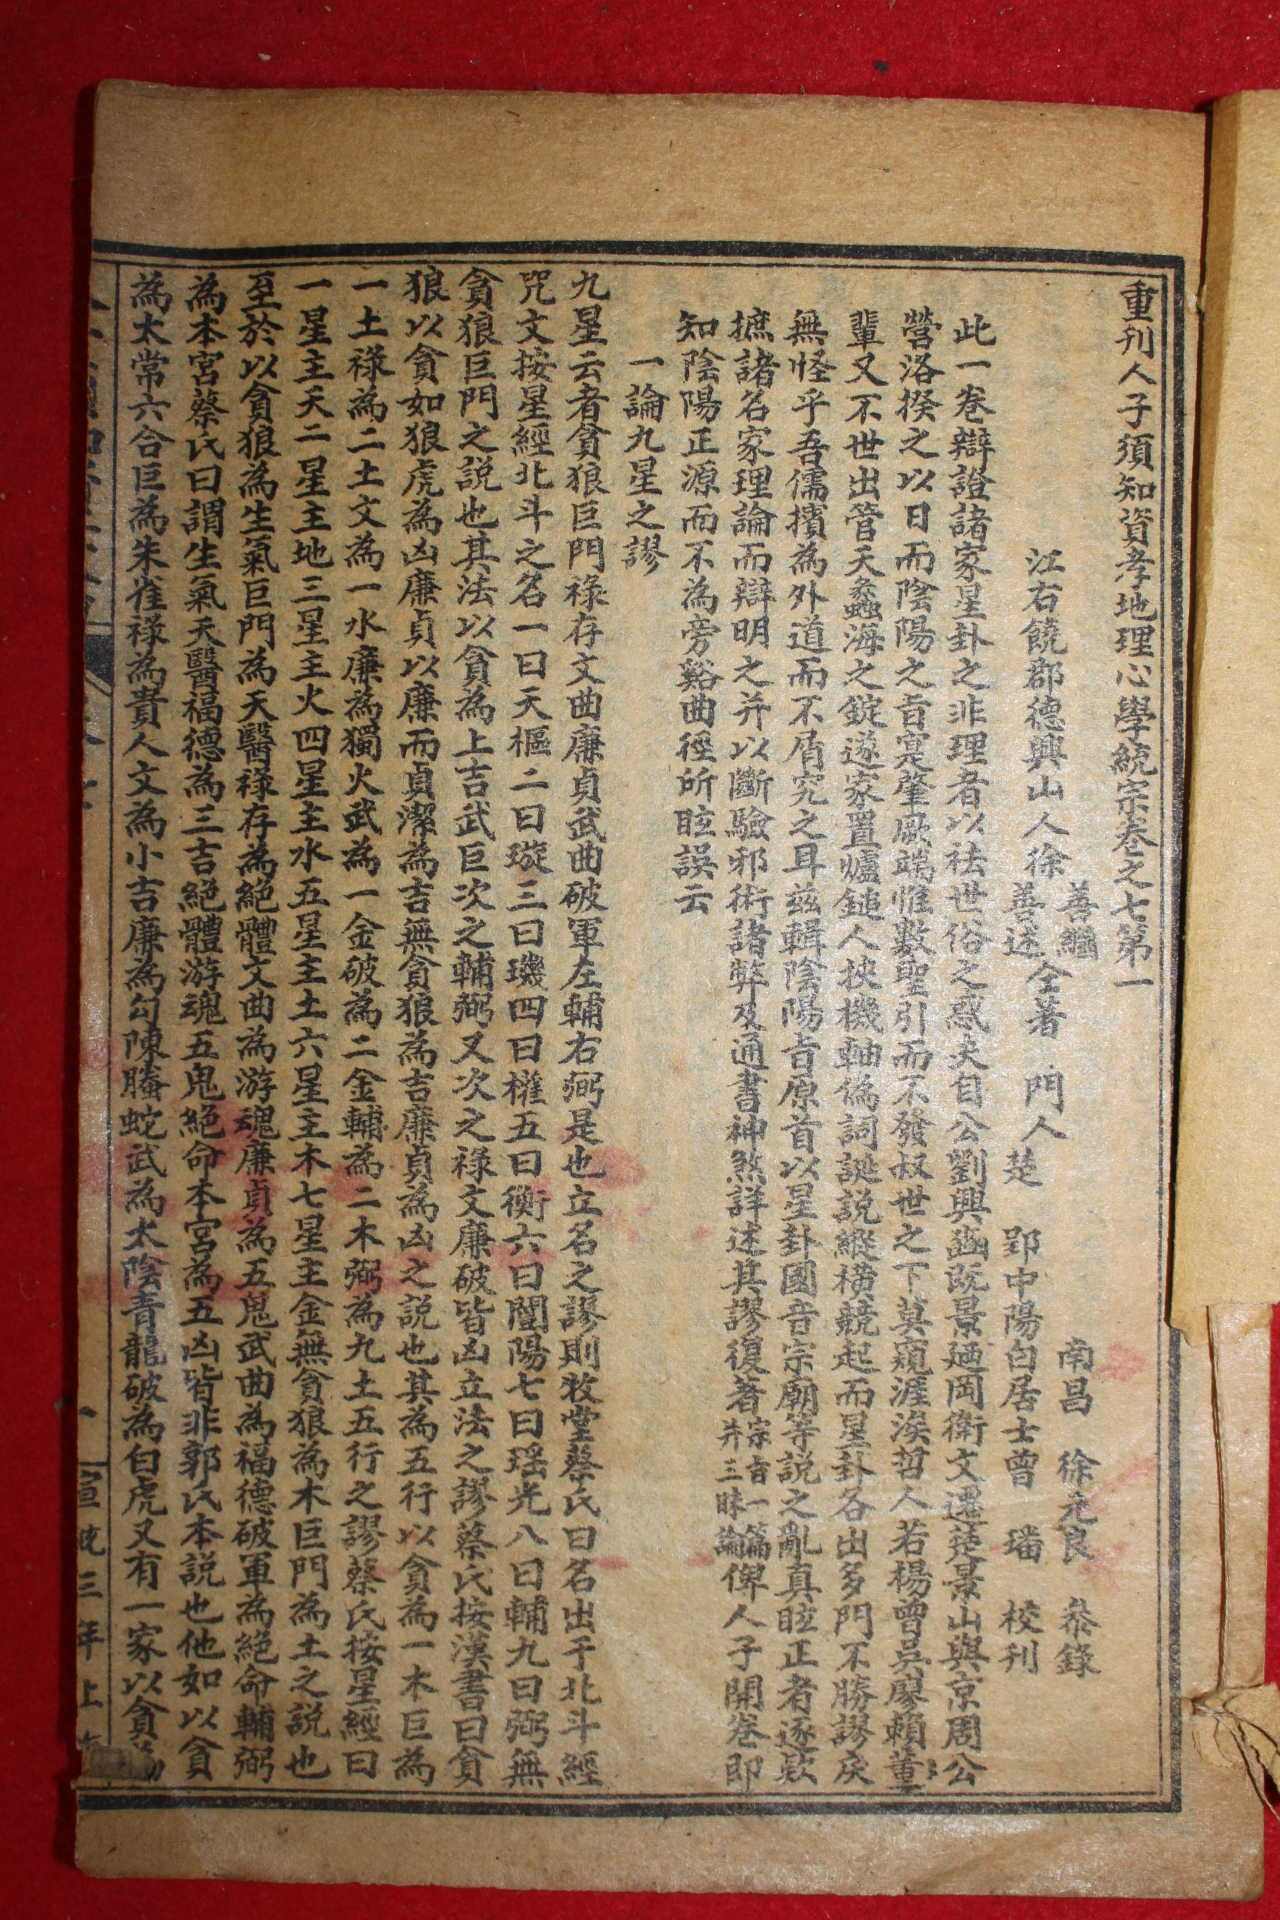 重刊人子須知資孝地理心學統宗卷之七第一
江右饒郡德興山人徐善繼善述仝著 門人 南昌 徐克良 叅錄
楚 郢中陽白居士曾 璠 校刊
此一卷辯證諸家星卦之非理者以祛世俗之惑夫自公劉興豳既景廼岡衛文遷楚景山與京周公
營洛揆之以日而陰陽之旨寔肇厥端惟數聖引而不發叔世之下莫窺涯涘哲人若楊曾吳廖賴董
輩又不世出管天蠡海之錠遂家置爐鎚人挾機軸偽詞誕說縱橫競起而星卦各出多門不勝謬戾
無怪乎吾儒擯為外道而不屑究之耳茲輯陰陽旨原首以星卦國音宗廟等說之亂真眩正者逐欵
摭諸名家理論而辯明之并以斷驗邪術諸弊及通書神煞詳述其謬復著宗旨一篇并三昧論俾人子開卷即
知陰陽正源而不為旁谿曲徑所眩誤云
一論九星之謬
九星云者貪狼巨門祿存文曲廉貞武曲破軍左輔右弼是也立名之謬則牧堂蔡氏曰名出于北斗經
咒文按星經北斗之名一曰天樞二曰璇三曰璣四曰權五曰衡六曰闓陽七曰瑶光八曰輔九曰弼無
貪狼巨門之説也其法以貪為上吉武巨次之輔弼又次之祿文廉破皆凶立法之謬蔡氏按漢書曰貪
狼以貪如狼虎為凶廉貞以廉而貞潔為吉無貪狼為吉廉貞為凶之説也其為五行以貪為一木巨為
一土祿為二土文為一水廉為獨火武為一金破為二金輔為二木弼為九土五行之謬蔡氏按星經曰
一星主天二星主地三星主火四星主水五星主土六星主木七星主金無貪狼為木巨門為土之説也
至於以貪狼為生氣巨門為天醫祿存為絕體文曲為游魂廉貞為五鬼武曲為福德破軍為絕命輔弼
為本宮蔡氏曰謂生氣天醫福德為三吉絕體游魂五鬼絕命本宮為五凶皆非郭氏本説也他如以貪
為太常六合巨為朱雀祿為貴人文為小吉廉為勾陳螣蛇武為太陰青龍破為白虎又有一家以貪為
一 宣統三年上